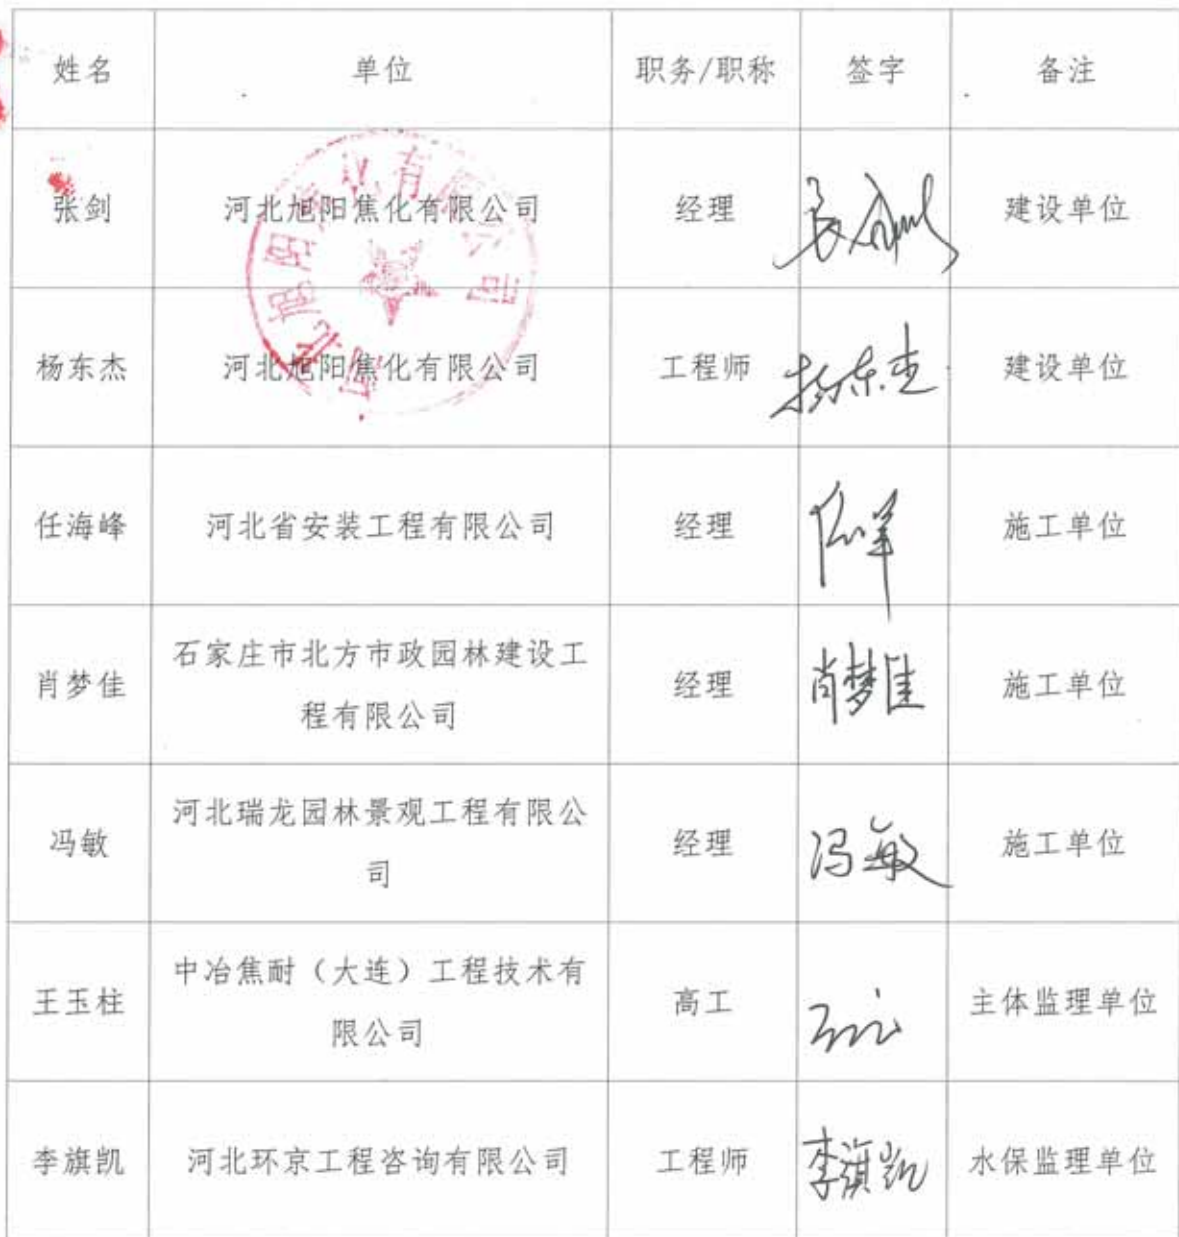 姓名 单位 职务/职称 签字 备注
张剑 河北旭阳焦化有限公司 经理 建设单位
河北旭阳焦化有限公司
杨东杰 河北旭阳焦化有限公司 工程师 杨东杰 建设单位
任海峰 河北省安装工程有限公司 经理 施工单位
肖梦佳 石家庄市北方市政园林建设工
程有限公司 经理 肖梦佳 施工单位
冯敏 河北瑞龙园林景观工程有限公
司 经理 冯敏 施工单位
王玉柱 中冶焦耐（大连）工程技术有
限公司 高工 主体监理单位
李旗凯 河北环京工程咨询有限公司 工程师 李旗凯 水保监理单位